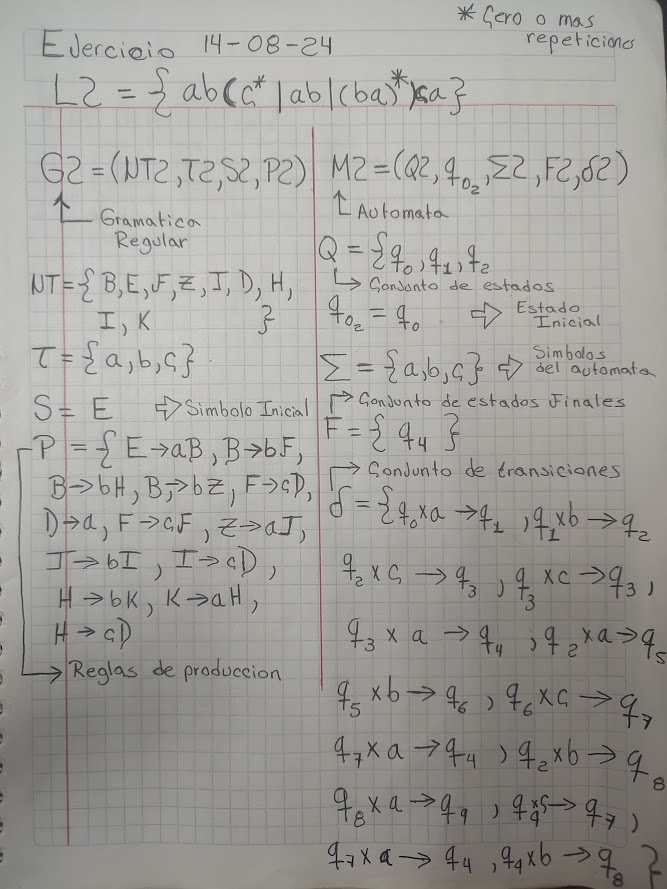 * Çero o mas
repeticiones
Ejercicio 14-08-24
L2 = { ab(ç* | ab | (ba)*)ça }
G2 = (NT2, T2, S2, P2)
Gramatica
Regular
NT = { B, E, F, Z, I, D, H,
I, K }
T = { a, b, ç }
S = E ⇨ Simbolo Inicial
P = { E → aB, B → bF,
B → bH, B → bZ, F → çD,
D → a, F → çF, Z → aJ,
J → bI, I → çD,
H → bK, K → aH,
H → çD
Reglas de produccion
M2 = (Q2, q₀₂, Σ2, F2, δ2)
Automata
Q = { q₀, q₁, q₂
Çonjunto de estados
q₀₂ = q₀ ⇨ Estado
Inicial
Σ = { a, b, ç } ⇨ Simbolos
del automata
Çonjunto de estados Finales
F = { q₄ }
Çonjunto de transiciones
δ = { q₀ x a → q₁, q₁ x b → q₂
q₂ x ç → q₃, q₃ x c → q₃,
q₃ x a → q₄, q₂ x a → q₅
q₅ x b → q₆, q₆ x ç → q₇
q₇ x a → q₄, q₂ x b → q₈
q₈ x a → q₉, q₉ x ç → q₇,
q₇ x a → q₄, q₉ x b → q₈ }